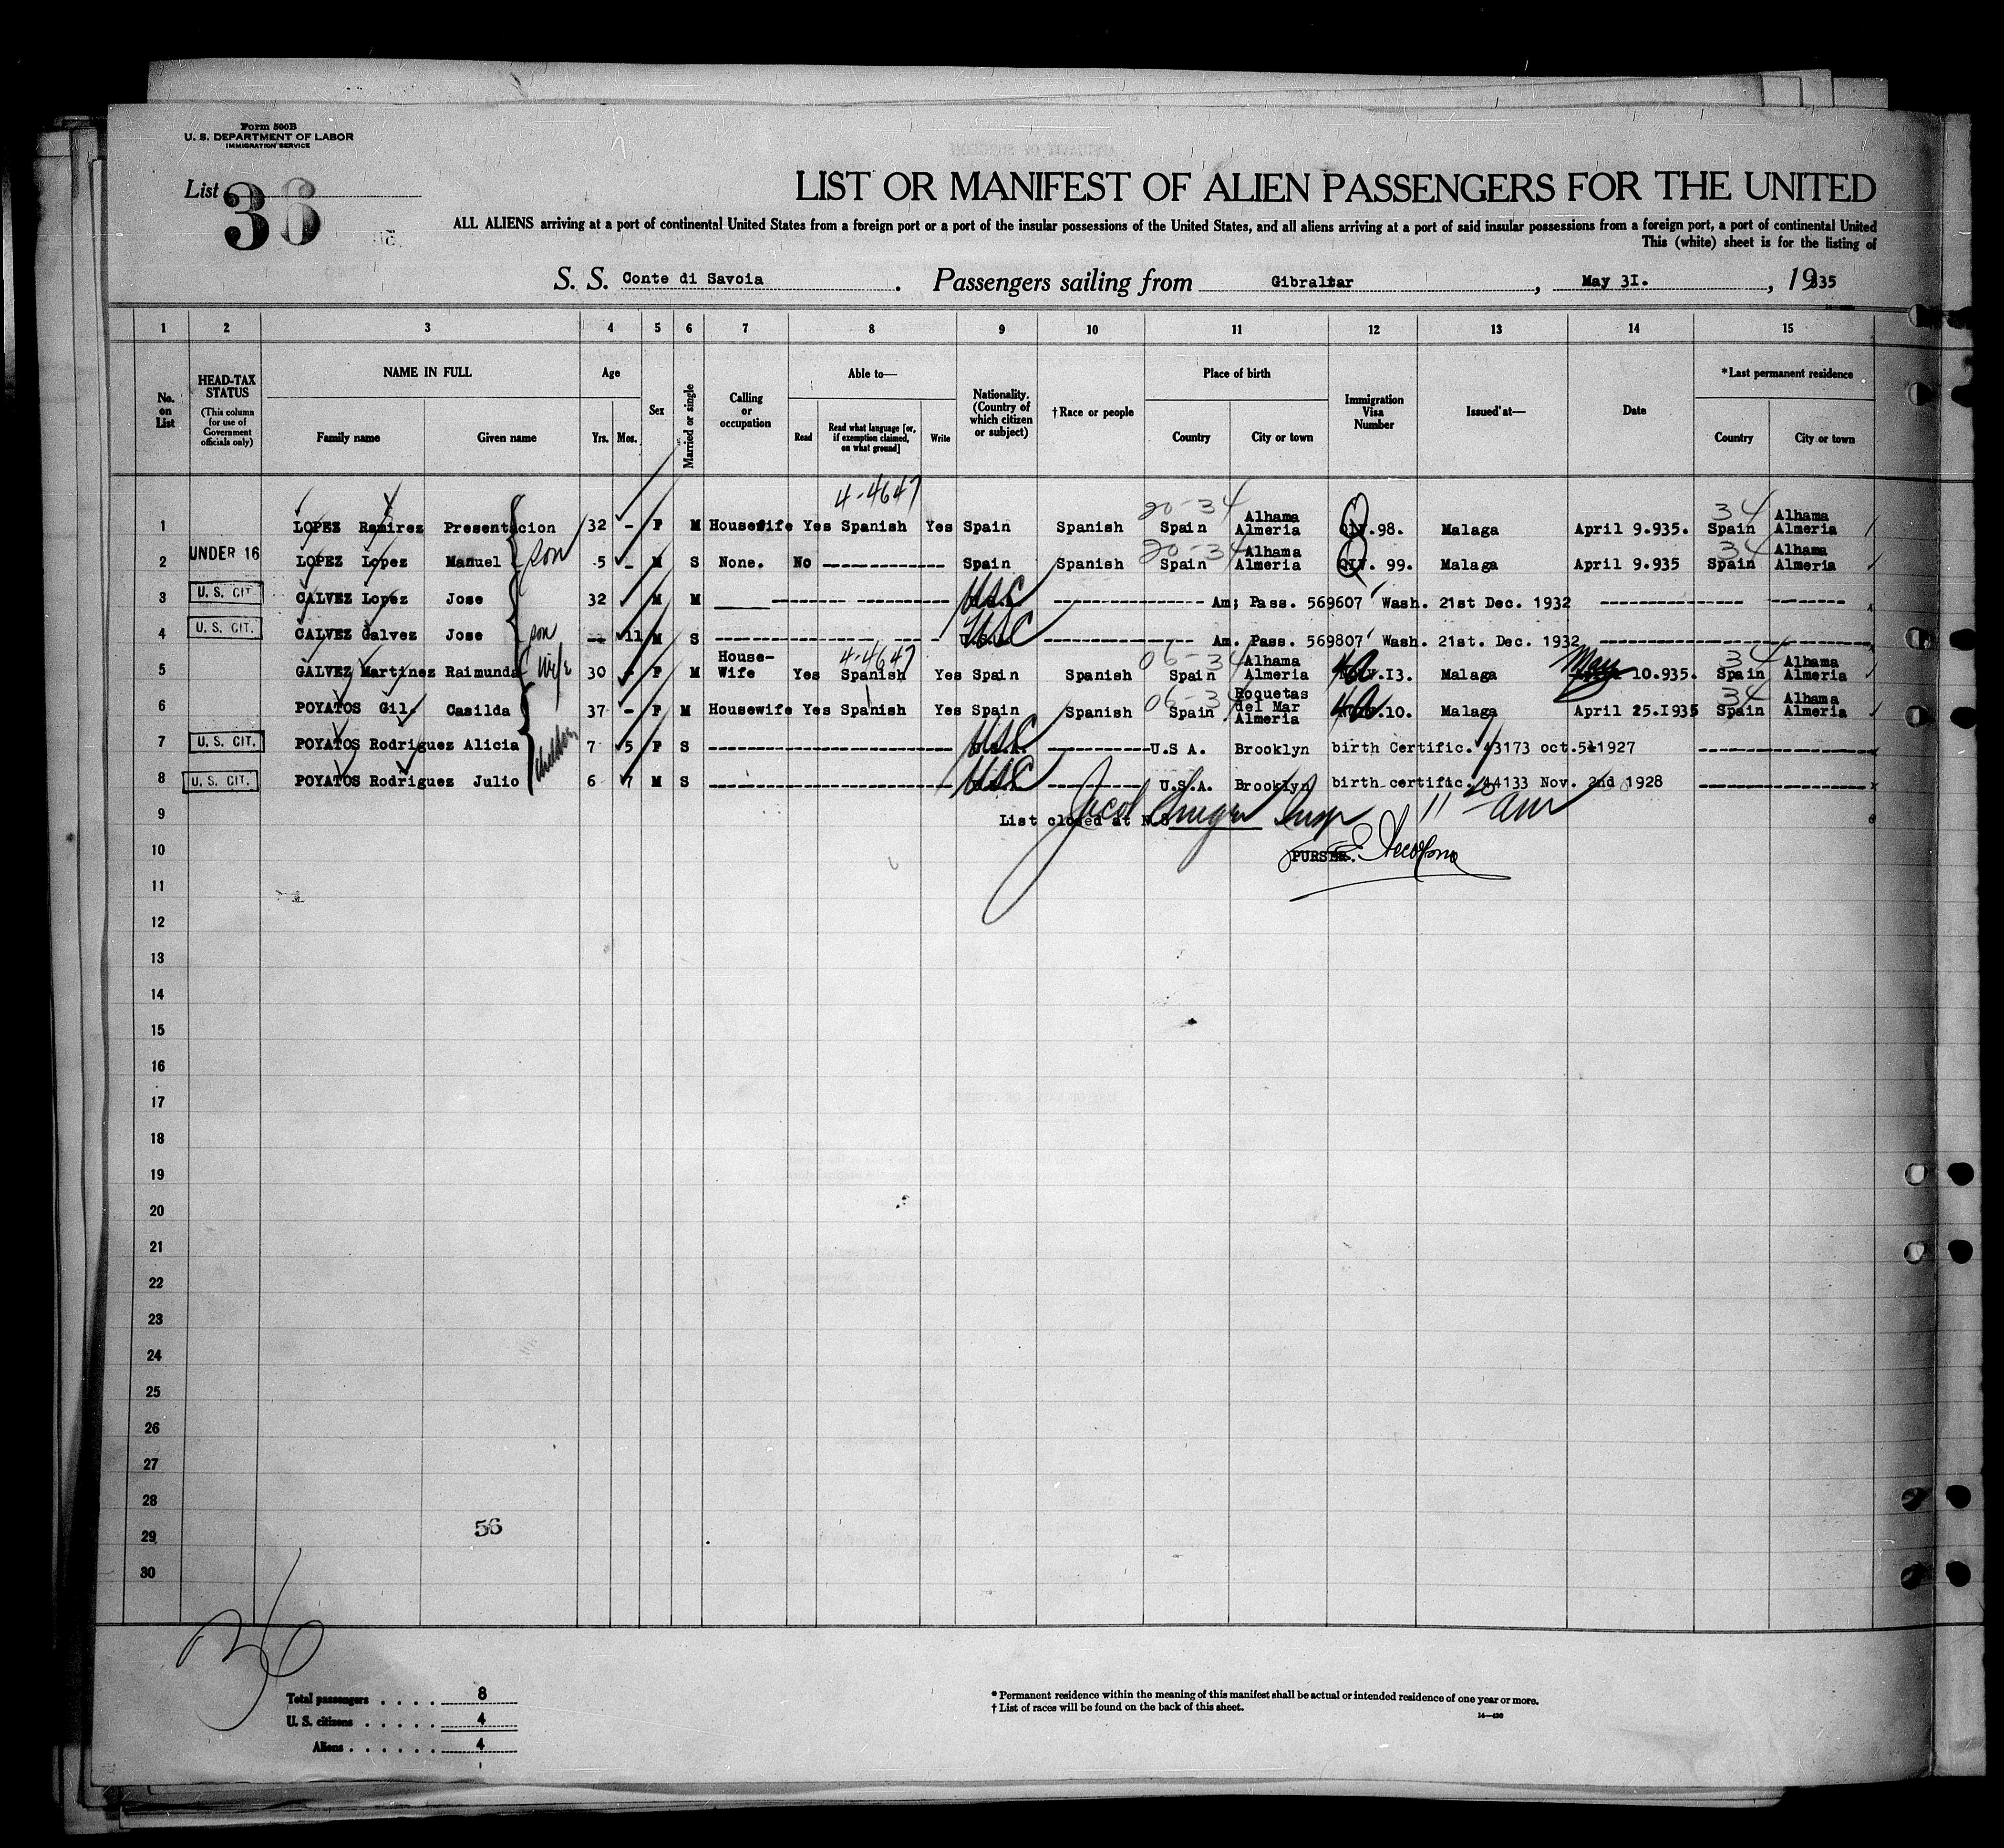 Form 500B
U. S. DEPARTMENT OF LABOR
IMMIGRATION SERVICE
List 36
LIST OR MANIFEST OF ALIEN PASSENGERS FOR THE UNITED
ALL ALIENS arriving at a port of continental United States from a foreign port or a port of the insular possessions of the United States, and all aliens arriving at a port of said insular possessions from a foreign port, a port of continental United
This (white) sheet is for the listing of
S. S. Conte di Savoia. Passengers sailing from Gibraltar, May 31., 1935
1 2 3 4 5 6 7 8 9 10 11 12 13 14 15
No. on List
HEAD-TAX STATUS (This column for use of Government officials only)
NAME IN FULL
Family name Given name
Age
Yrs. Mos.
Sex
Married or single
Calling or occupation
Able to—
Read
Read what language [or, if exemption claimed, on what ground]
Write
Nationality. (Country of which citizen or subject)
†Race or people
Place of birth
Country City or town
Immigration Visa Number
Issued at—
Date
*Last permanent residence
Country City or town
4-4647
20-34 34
1 LOPEZ Ramirez Presentacion 32 - F M Housewife Yes Spanish Yes Spain Spanish Spain Alhama Almeria QIV.98. Malaga April 9.935. Spain Alhama Almeria
20-34 34
2 UNDER 16 LOPEZ Lopez Manuel son 5 - M S None. No ------------ Spain Spanish Spain Alhama Almeria QIV. 99. Malaga April 9.935 Spain Alhama Almeria
3 U. S. CIT. CALVEZ Lopez Jose 32 M M ------------ USC ------------ Am; Pass. 569607 Wash. 21st Dec. 1932 ------------
4 U. S. CIT. CALVEZ Galvez Jose son -- 11 M S ------------ USC ------------ Am. Pass. 569807 Wash. 21st. Dec. 1932 ------------
4-4647 06-34 34
5 GALVEZ Martinez Raimunda wife 30 - F M House-Wife Yes Spanish Yes Spain Spanish Spain Alhama Almeria 4a .I3. Malaga May 10.935. Spain Alhama Almeria
06-34 34
6 POYATOS Gil. Casilda 37 - F M Housewife Yes Spanish Yes Spain Spanish Spain Roquetas del Mar Almeria 4a .10. Malaga April 25.I935 Spain Alhama Almeria
children
7 U. S. CIT. POYATOS Rodriguez Alicia 7 5 F S ------------ USC ------------ U.S A. Brooklyn birth Certific. 43173 oct.5 1927 ------------
8 U. S. CIT. POYATOS Rodriguez Julio 6 7 M S ------------ USC ------------ U.S.A. Brooklyn birth certific. 44133 Nov. 2nd 1928 ------------
9 List closed at N. 8 Insp 11 am
10 PURSER.
11
12
13
14
15
16
17
18
19
20
21
22
23
24
25
26
27
28
29 56
30
36
Total passengers . . . . 8
U. S. citizens . . . . . 4
Aliens . . . . . . 4
* Permanent residence within the meaning of this manifest shall be actual or intended residence of one year or more.
† List of races will be found on the back of this sheet.
14—430